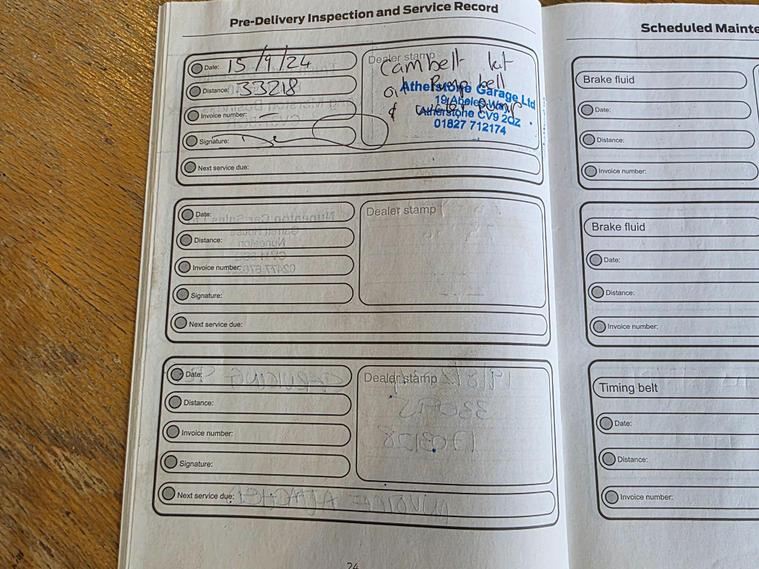 Pre-Delivery Inspection and Service Record
Date: 15/9/24
Distance: 33218
Invoice number:
Signature:
Next service due:
Dealer stamp
Cambelt kit
oil Pump belt
& water pump.
Atherstone Garage Ltd
19 Abeles Way
Atherstone CV9 2QZ
01827 712174
Date:
Distance:
Invoice number:
Signature:
Next service due:
Dealer stamp
Date:
Distance:
Invoice number:
Signature:
Next service due:
Dealer stamp
24
Scheduled Mainte
Brake fluid
Date:
Distance:
Invoice number:
Brake fluid
Date:
Distance:
Invoice number:
Timing belt
Date:
Distance:
Invoice number: